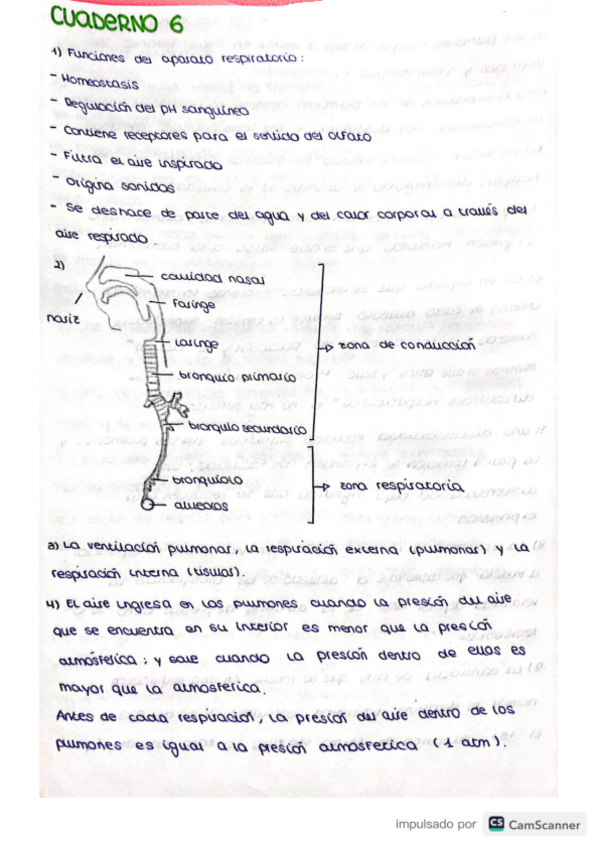 CUADERNO 6
1) Funciones del aparato respiratorio:
- Homeostasis
- Regulación del pH sanguíneo
- Contiene receptores para el sentido del olfato
- Filtra el aire inspirado
- Origina sonidos
- Se deshace de parte del agua y del calor corporal a través del
aire respirado
2)
cavidad nasal
nariz
Faringe
Laringe
bronquio primario
zona de conducción
bronquio secundario
bronquiolo
zona respiratoria
alveolos
3) La ventilación pulmonar, la respiración externa (pulmonar) y la
respiración interna (tisular).
4) El aire ingresa en los pulmones cuando la presión del aire
que se encuentra en su interior es menor que la presión
atmósferica; y sale cuando la presión dentro de ellos es
mayor que la atmosferica.
Antes de cada respiración, la presión del aire dentro de los
pulmones es igual a la presión atmosferica (1 atm).
impulsado por CS CamScanner